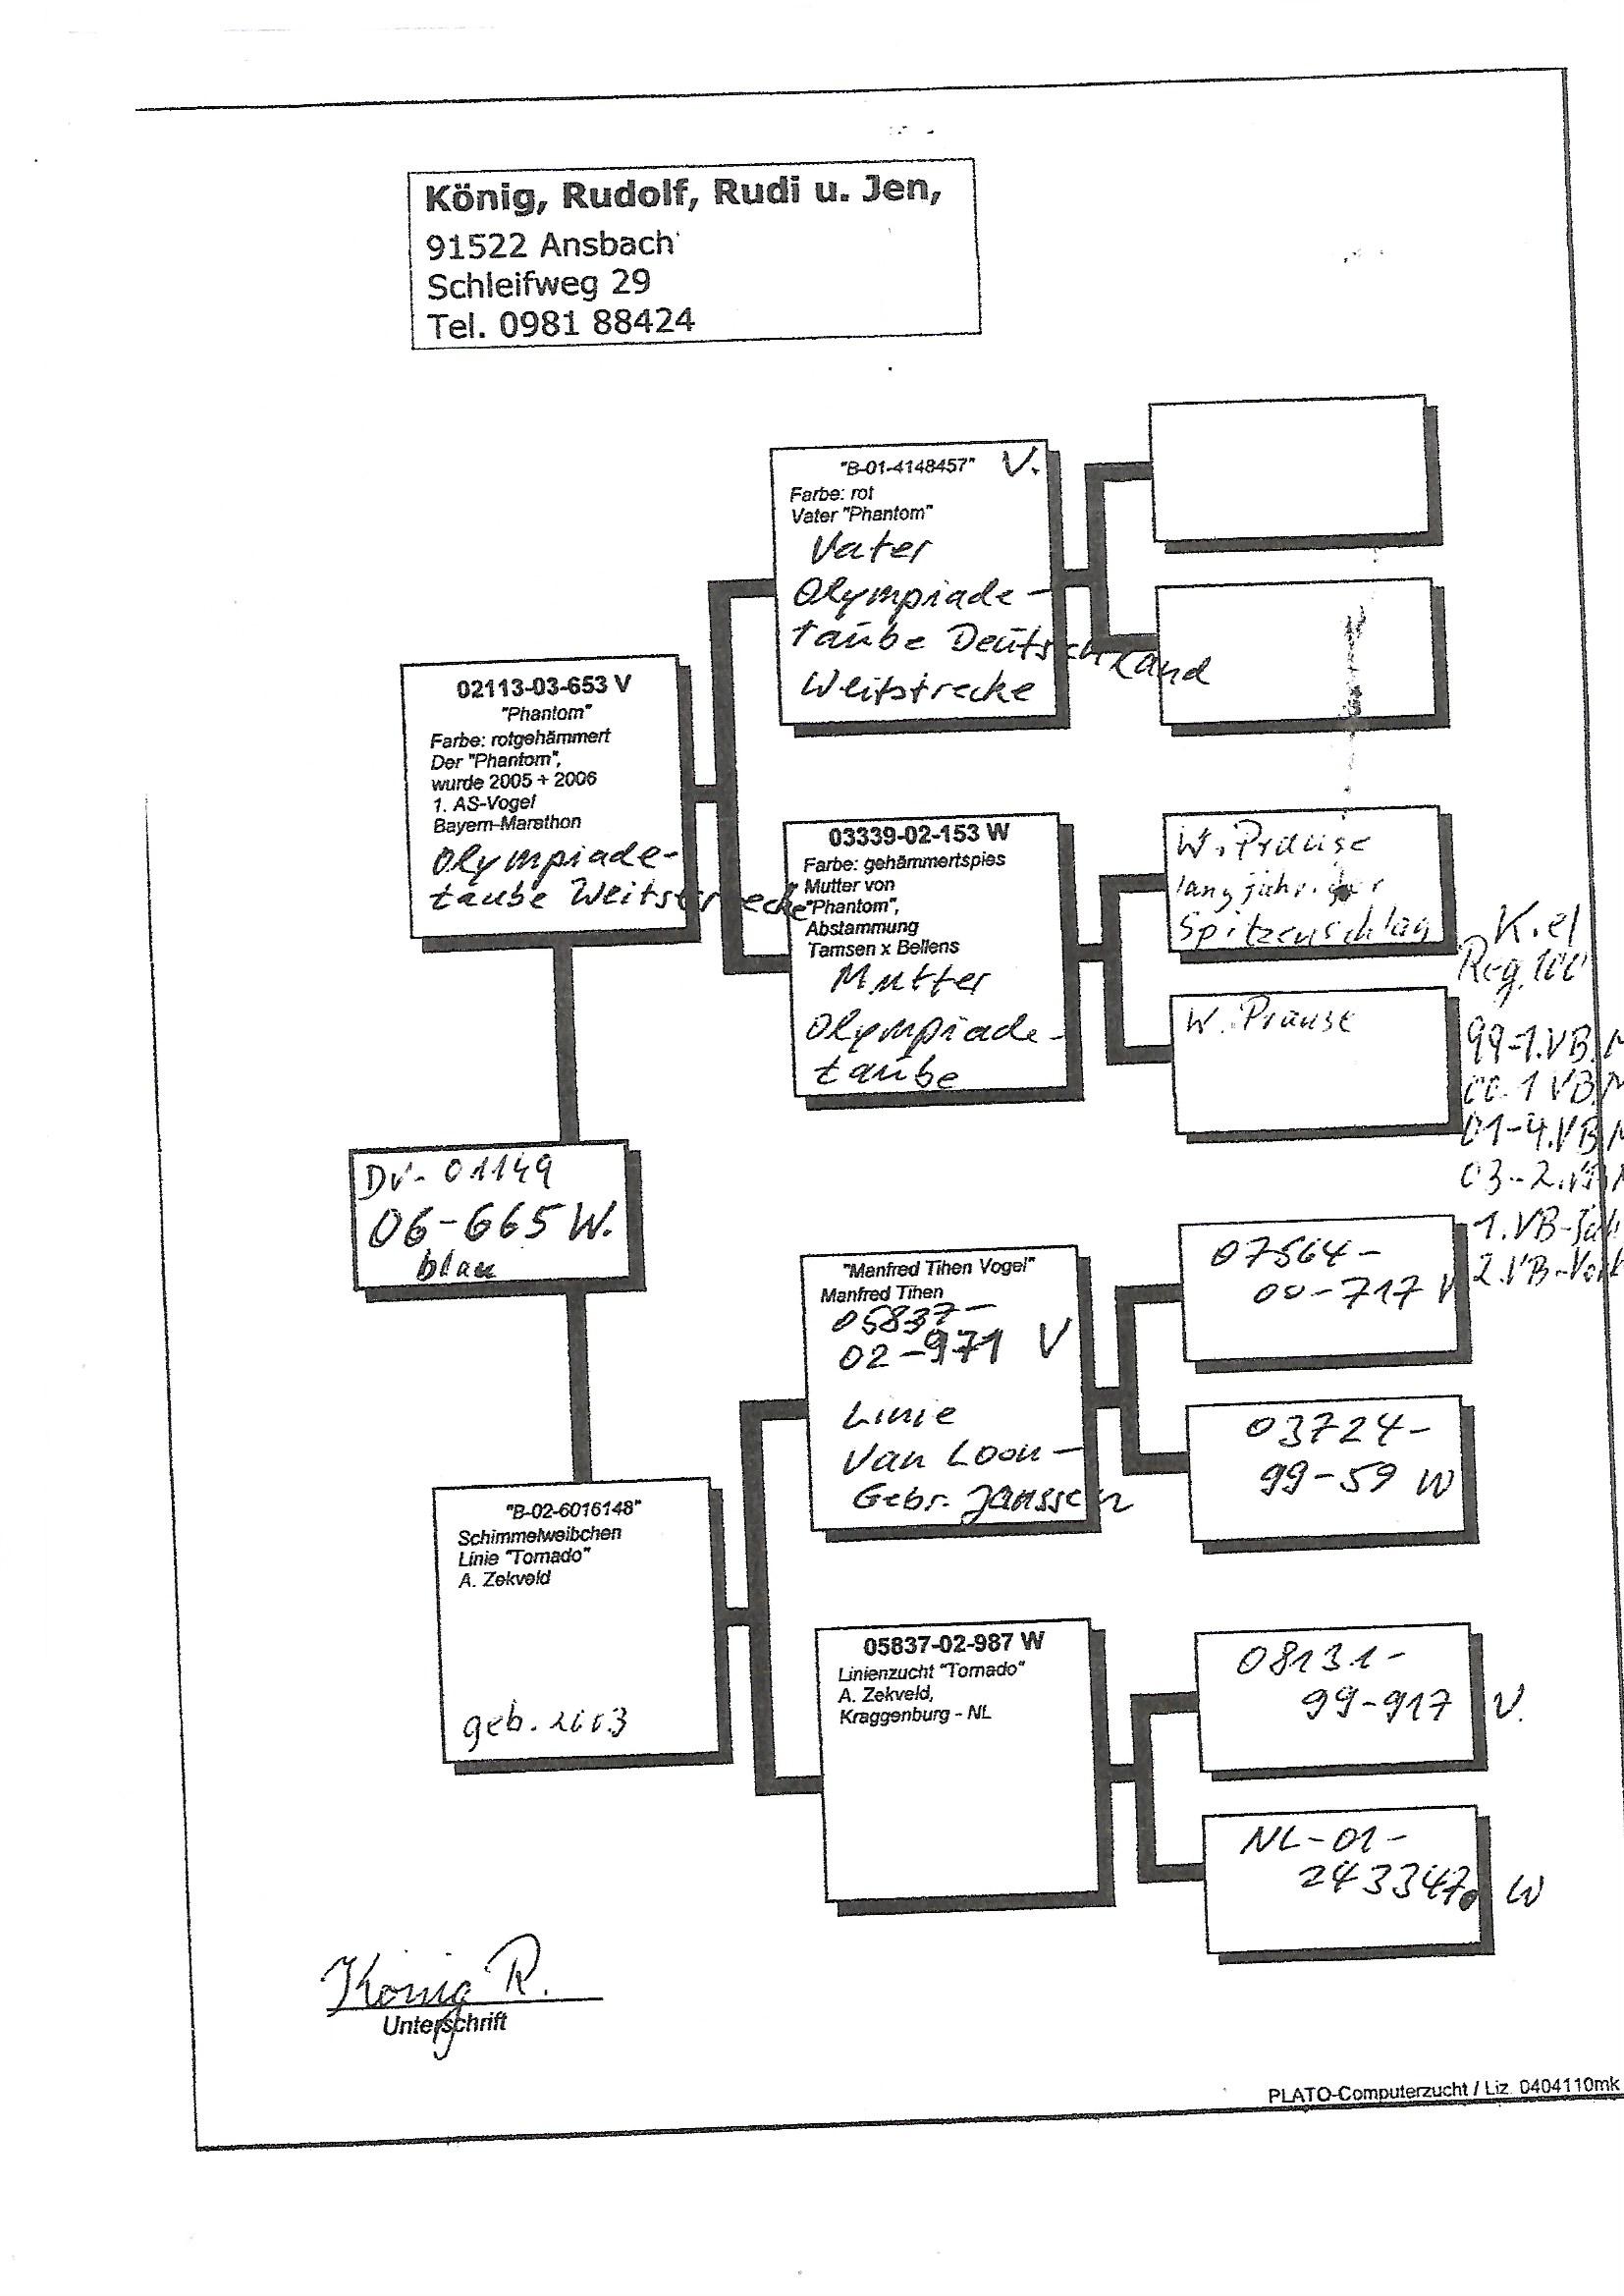 König, Rudolf, Rudi u. Jen,
91522 Ansbach
Schleifweg 29
Tel. 0981 88424
"B-01-4148457" V.
Farbe: rot
Vater "Phantom"
Vater
Olympiade-
taube Deutschland
Weitstrecke
02113-03-653 V
"Phantom"
Farbe: rotgehämmert
Der "Phantom",
wurde 2005 + 2006
1. AS-Vogel
Bayern-Marathon
Olympiade-
taube Weitstrecke
03339-02-153 W
Farbe: gehämmertspies
Mutter von
"Phantom",
Abstammung
Tamsen x Bellens
Mutter
Olympiade-
taube
W. Prause
langjähriger
Spitzenschlag
W. Prause
Kiel
Reg. 100
99-1.VB.M
00.1 VB.M
01-4.VB M
03-2.VB.M
1. VB-
2.VB-
DV-01149
06-665 W.
blau
"Manfred Tihen Vogel"
Manfred Tihen
05837-
02-971 V
Linie
Van Loon-
Gebr. Janssen
07564-
00-717 V
03724-
99-59 W
"B-02-6016148"
Schimmelweibchen
Linie "Tornado"
A. Zekveld
geb. 2003
05837-02-987 W
Linienzucht "Tornado"
A. Zekveld,
Kraggenburg - NL
08131-
99-917 V.
NL-01-
2433470 W
König R.
Unterschrift
PLATO-Computerzucht / Liz. 0404110mk